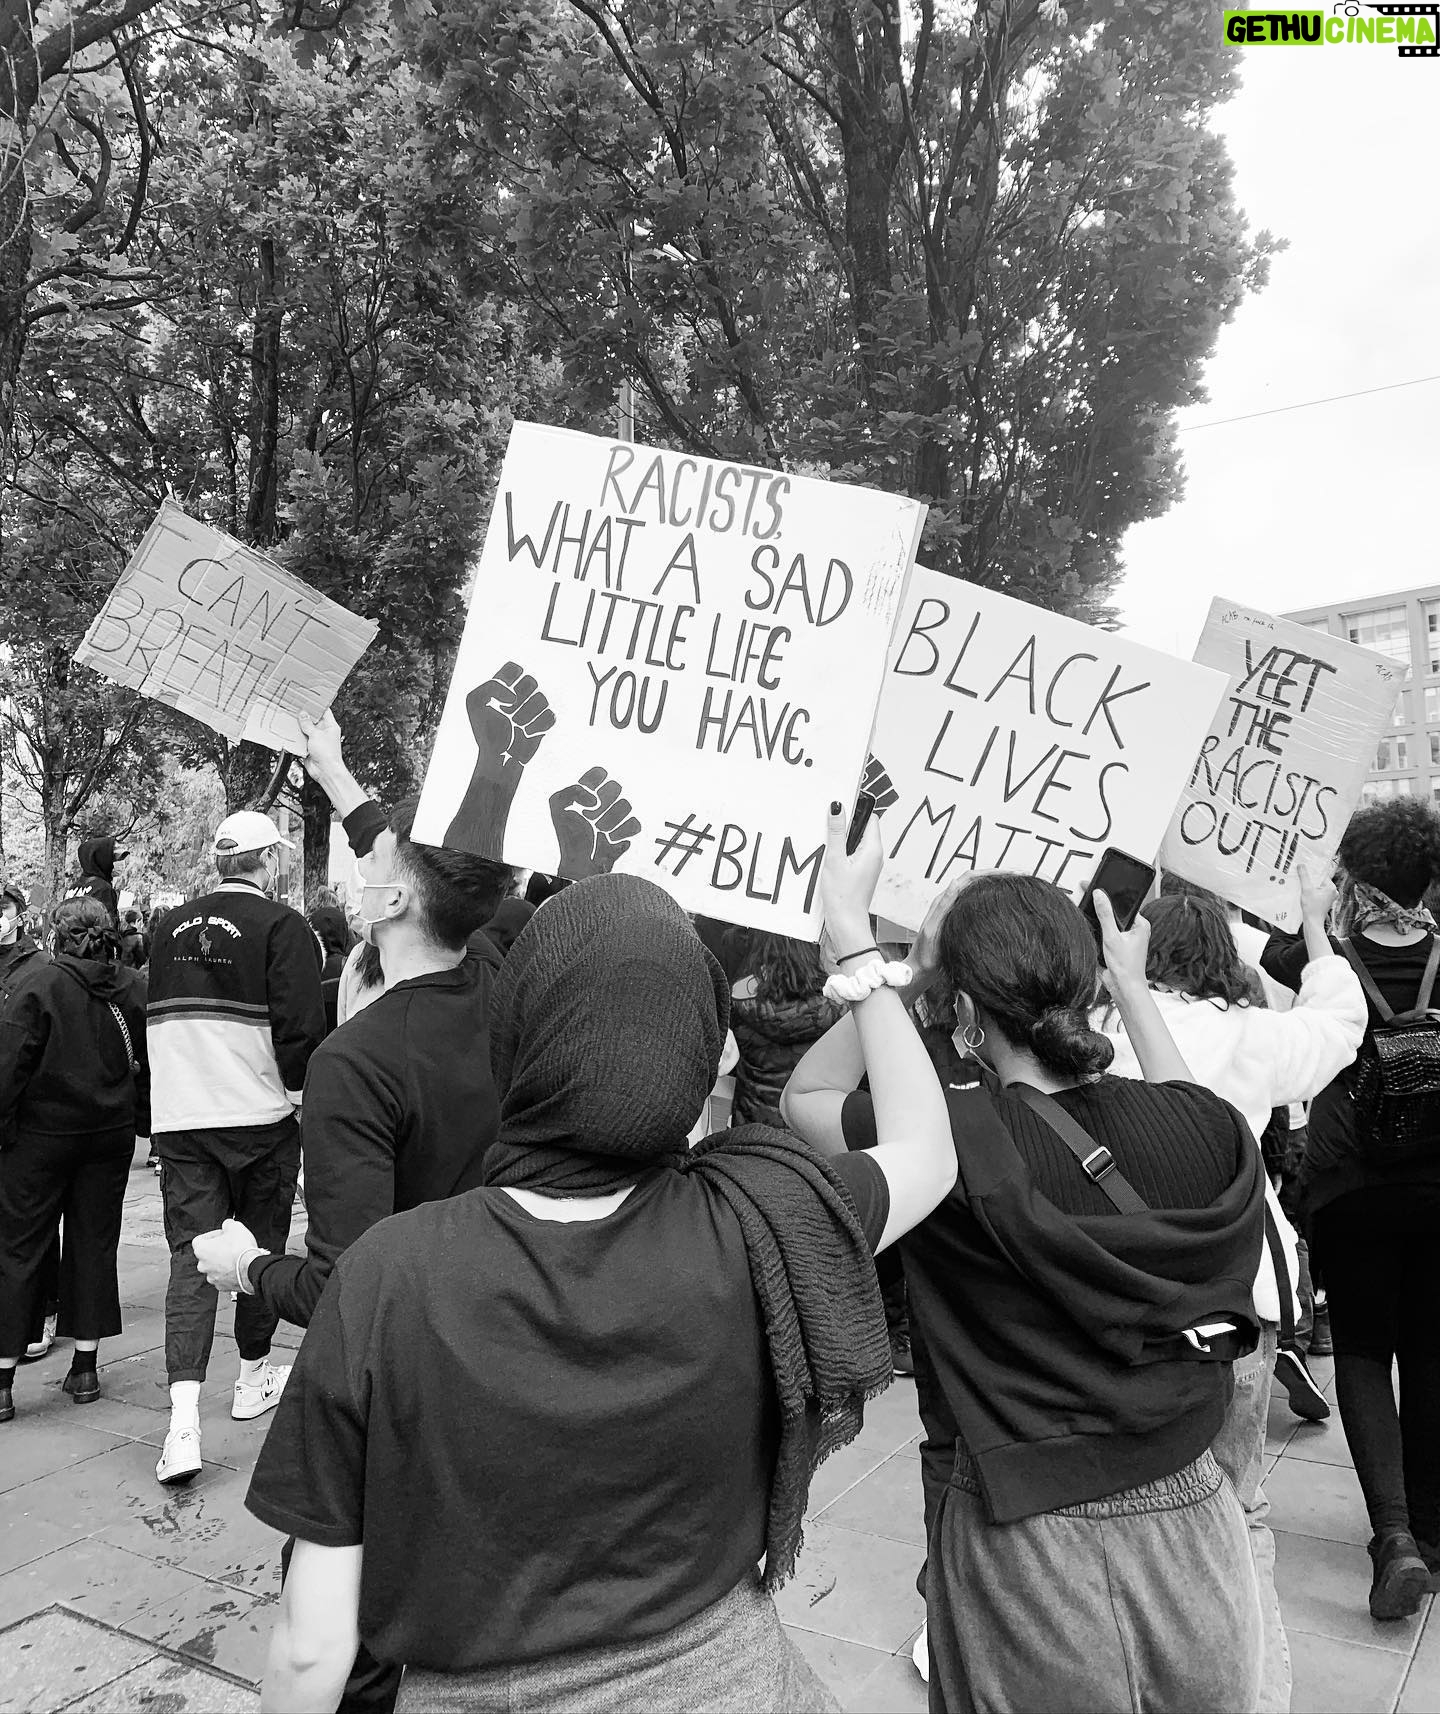 GETHUCINEMA
I CAN'T
BREATHE
RACISTS,
WHAT A SAD
LITTLE LIFE
YOU HAVE.
#BLM
BLACK
LIVES
MATTE
ACAB
ACAB
YEET
THE
RACISTS
OUT!!
POLO SPORT
RALPH LAUREN